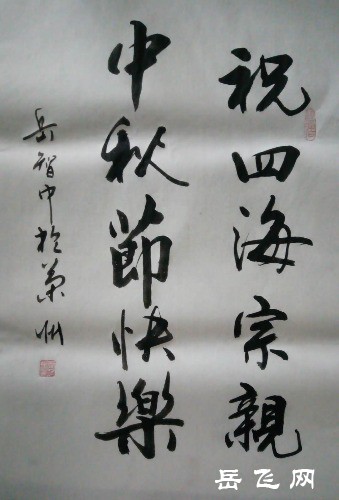 祝四海宗親
中秋節快樂
岳智中於蘭州
岳飞网